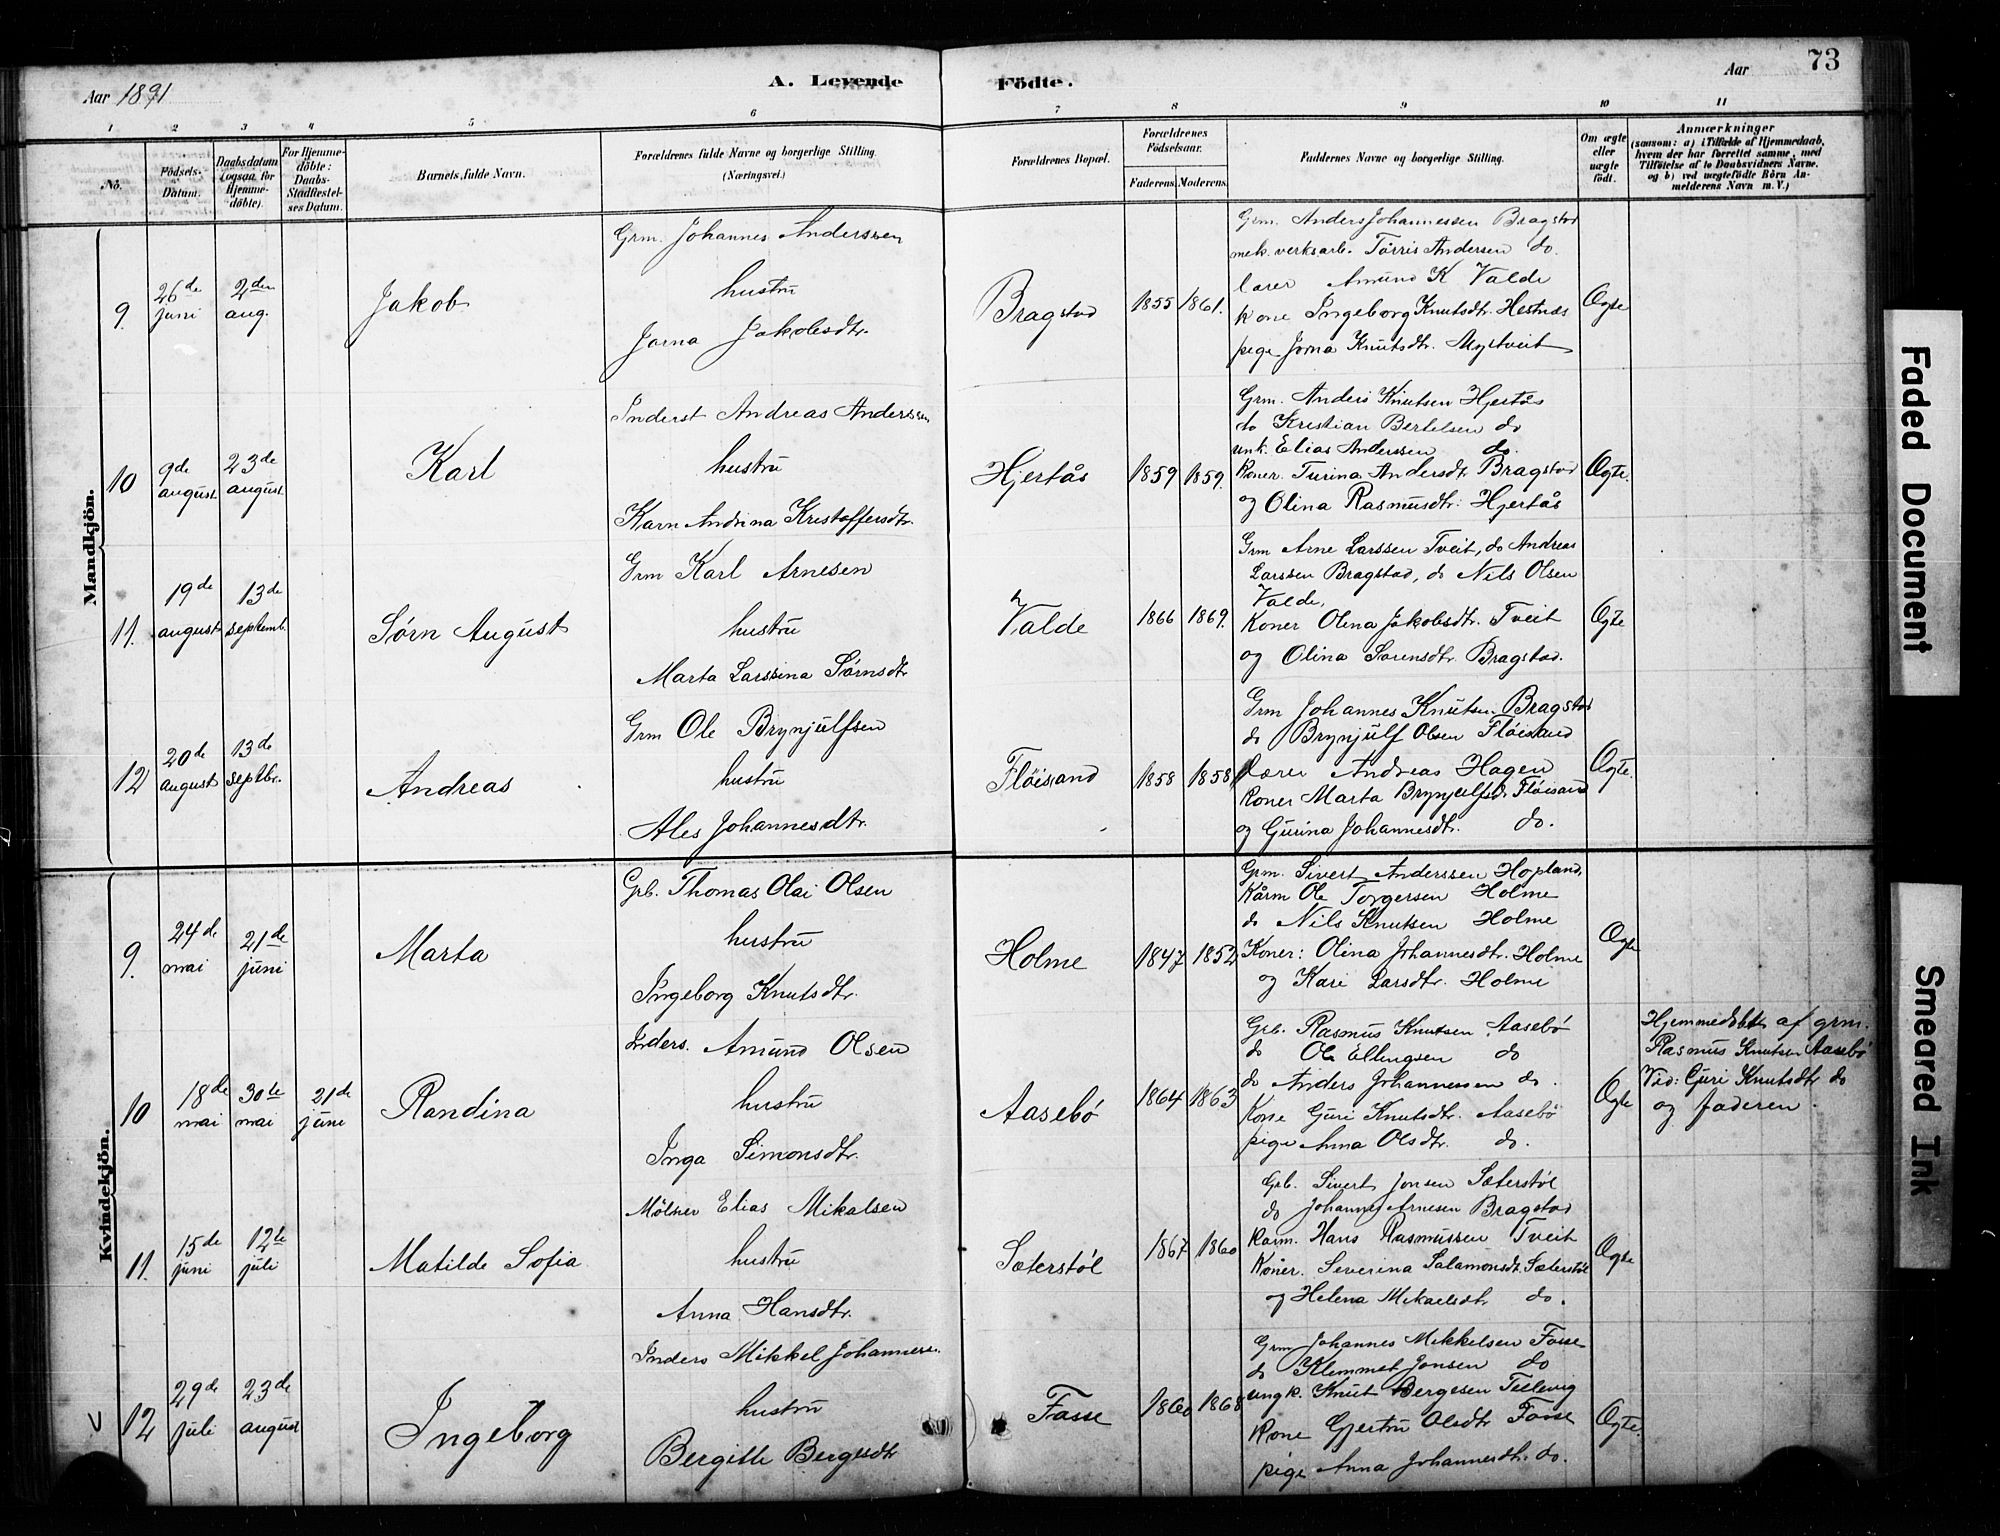 Aar 1891
A. Levende Födte.
Aar
73
1 2 3 4 5 6 7 8 9 10 11
No.
Födsels-Datum.
Daabsdatum (ogsaa for Hjemme-döbte).
For Hjemme-döbte: Daabs-Stadfæstelses Datum.
Barnets fulde Navn.
Forældrenes fulde Navne og borgerlige Stilling. (Næringsvei.)
Forældrenes Bopæl.
Forældrenes Födselsaar.
Faderens. Moderens.
Faddernes Navne og borgerlige Stilling.
Om ægte eller uægte födt.
Anmærkninger
(saasom: a) i Tilfælde af Hjemmedaab, hvem der har forrettet samme, med Tilföielse af to Daabsvidners Navne, og b) ved uægtefödte Börn Anmelderens Navn m. V.)
Mandkjön.
9. 26de juni 2den aug. Jakob
Grm. Johannes Anderssen
hustru
Jorna Jakobsdtr.
Bragstad 1855 1861.
Grm. Anders Johannessen Bragstad
mek. verksarb. Tørris Andersen do.
lærer Amund K Valde
kone Ingeborg Knutsdtr. Hestnæs
pige Jorna Knutsdtr. Myrtveit
Ægte
10 9de august 23de august Karl
Inderst Andreas Anderssen
hustru
Karn Andrina Kristoffersdtr.
Hjertås 1859 1859.
Grm. Anders Knutsen Hjertås
do Kristian Bertelsen do
unk. Elias Anderssen do.
Koner. Turina Andersdtr. Bragstad
og Olina Rasmusdtr. Hjertås
Ægte.
11. 19de august 13de septemb. Sørn August
Grm Karl Arnesen
hustru
Marta Larssina Sørnsdtr
Valde 1866 1869.
Grm Arne Larssen Tveit, do Andreas
Larssen Bragstad, do Nils Olsen
Valde,
Koner Olina Jakobsdtr. Tveit
og Olina Sorensdtr. Bragstad.
Ægte
12 20de august 13de septbr. Andreas
Grm Ole Brynjulfsen
hustru
Ales Johannesdtr.
Fløisand 1858 1858
Grm Johannes Knutsen Bragstad
do Brynjulf Olsen Fløisand
lærer Andreas Hagen
Koner Marta Brynjulfsd. Fløisand
og Gurina Johannesdtr. do.
Ægte.
Kvindekjön.
9. 24de mai 21de juni Marta
Grb. Thomas Olai Olsen
hustru
Ingeborg Knutsdtr.
Holme 1847 1852
Grm. Sivert Anderssen Hopland,
Kårm Ole Torgersen Holme
do Nils Knutsen Holme
Koner: Olina Johannesdtr. Holme
og Kari Larsdtr. Holme
Ægte
10 18de mai 30te mai 21de juni Randina
Inders. Amund Olsen
hustru
Inga Simonsdtr.
Aasebø 1864 1863
Grb. Rasmus Knutsen Aasebö
do Ole Ellingsen do
do Anders Johannessen do.
Kone Guri Knutsdtr. Aasebö
pige Anna Olsdtr. do.
Ægte
Hjemmedøbt af grm.
Rasmus Knutsen Aasebø
Vid: Guri Knutsdtr do
og faderen.
11. 15de juni 12te juli Matilde Sofia
Mölner Elias Mikalsen
hustru
Anna Hansdtr.
Sæterstøl 1867 1860
Grb. Sivert Jonsen Sæterstøl
do Johannes Arnesen Bragstad
Kårm. Hans Rasmussen Tveit
Koner. Severina Salamonsdt. Sæterstøl
og Helena Mikaelsdtr do.
Ægte
V 12 29de juli 23de august Ingeborg
Inders Mikkel Johannesen
hustru
Bergitte Bergesdtr
Fosse 1860 1868
Grm Johannes Mikkelsen Fosse
do Klemmet Jonsen do
ungk. Knut Bergesen Tellevig
Kone Gjertru Olsdtr Fosse
pige Anna Johannesdtr. do.
Ægte.
Faded Document
Smeared Ink